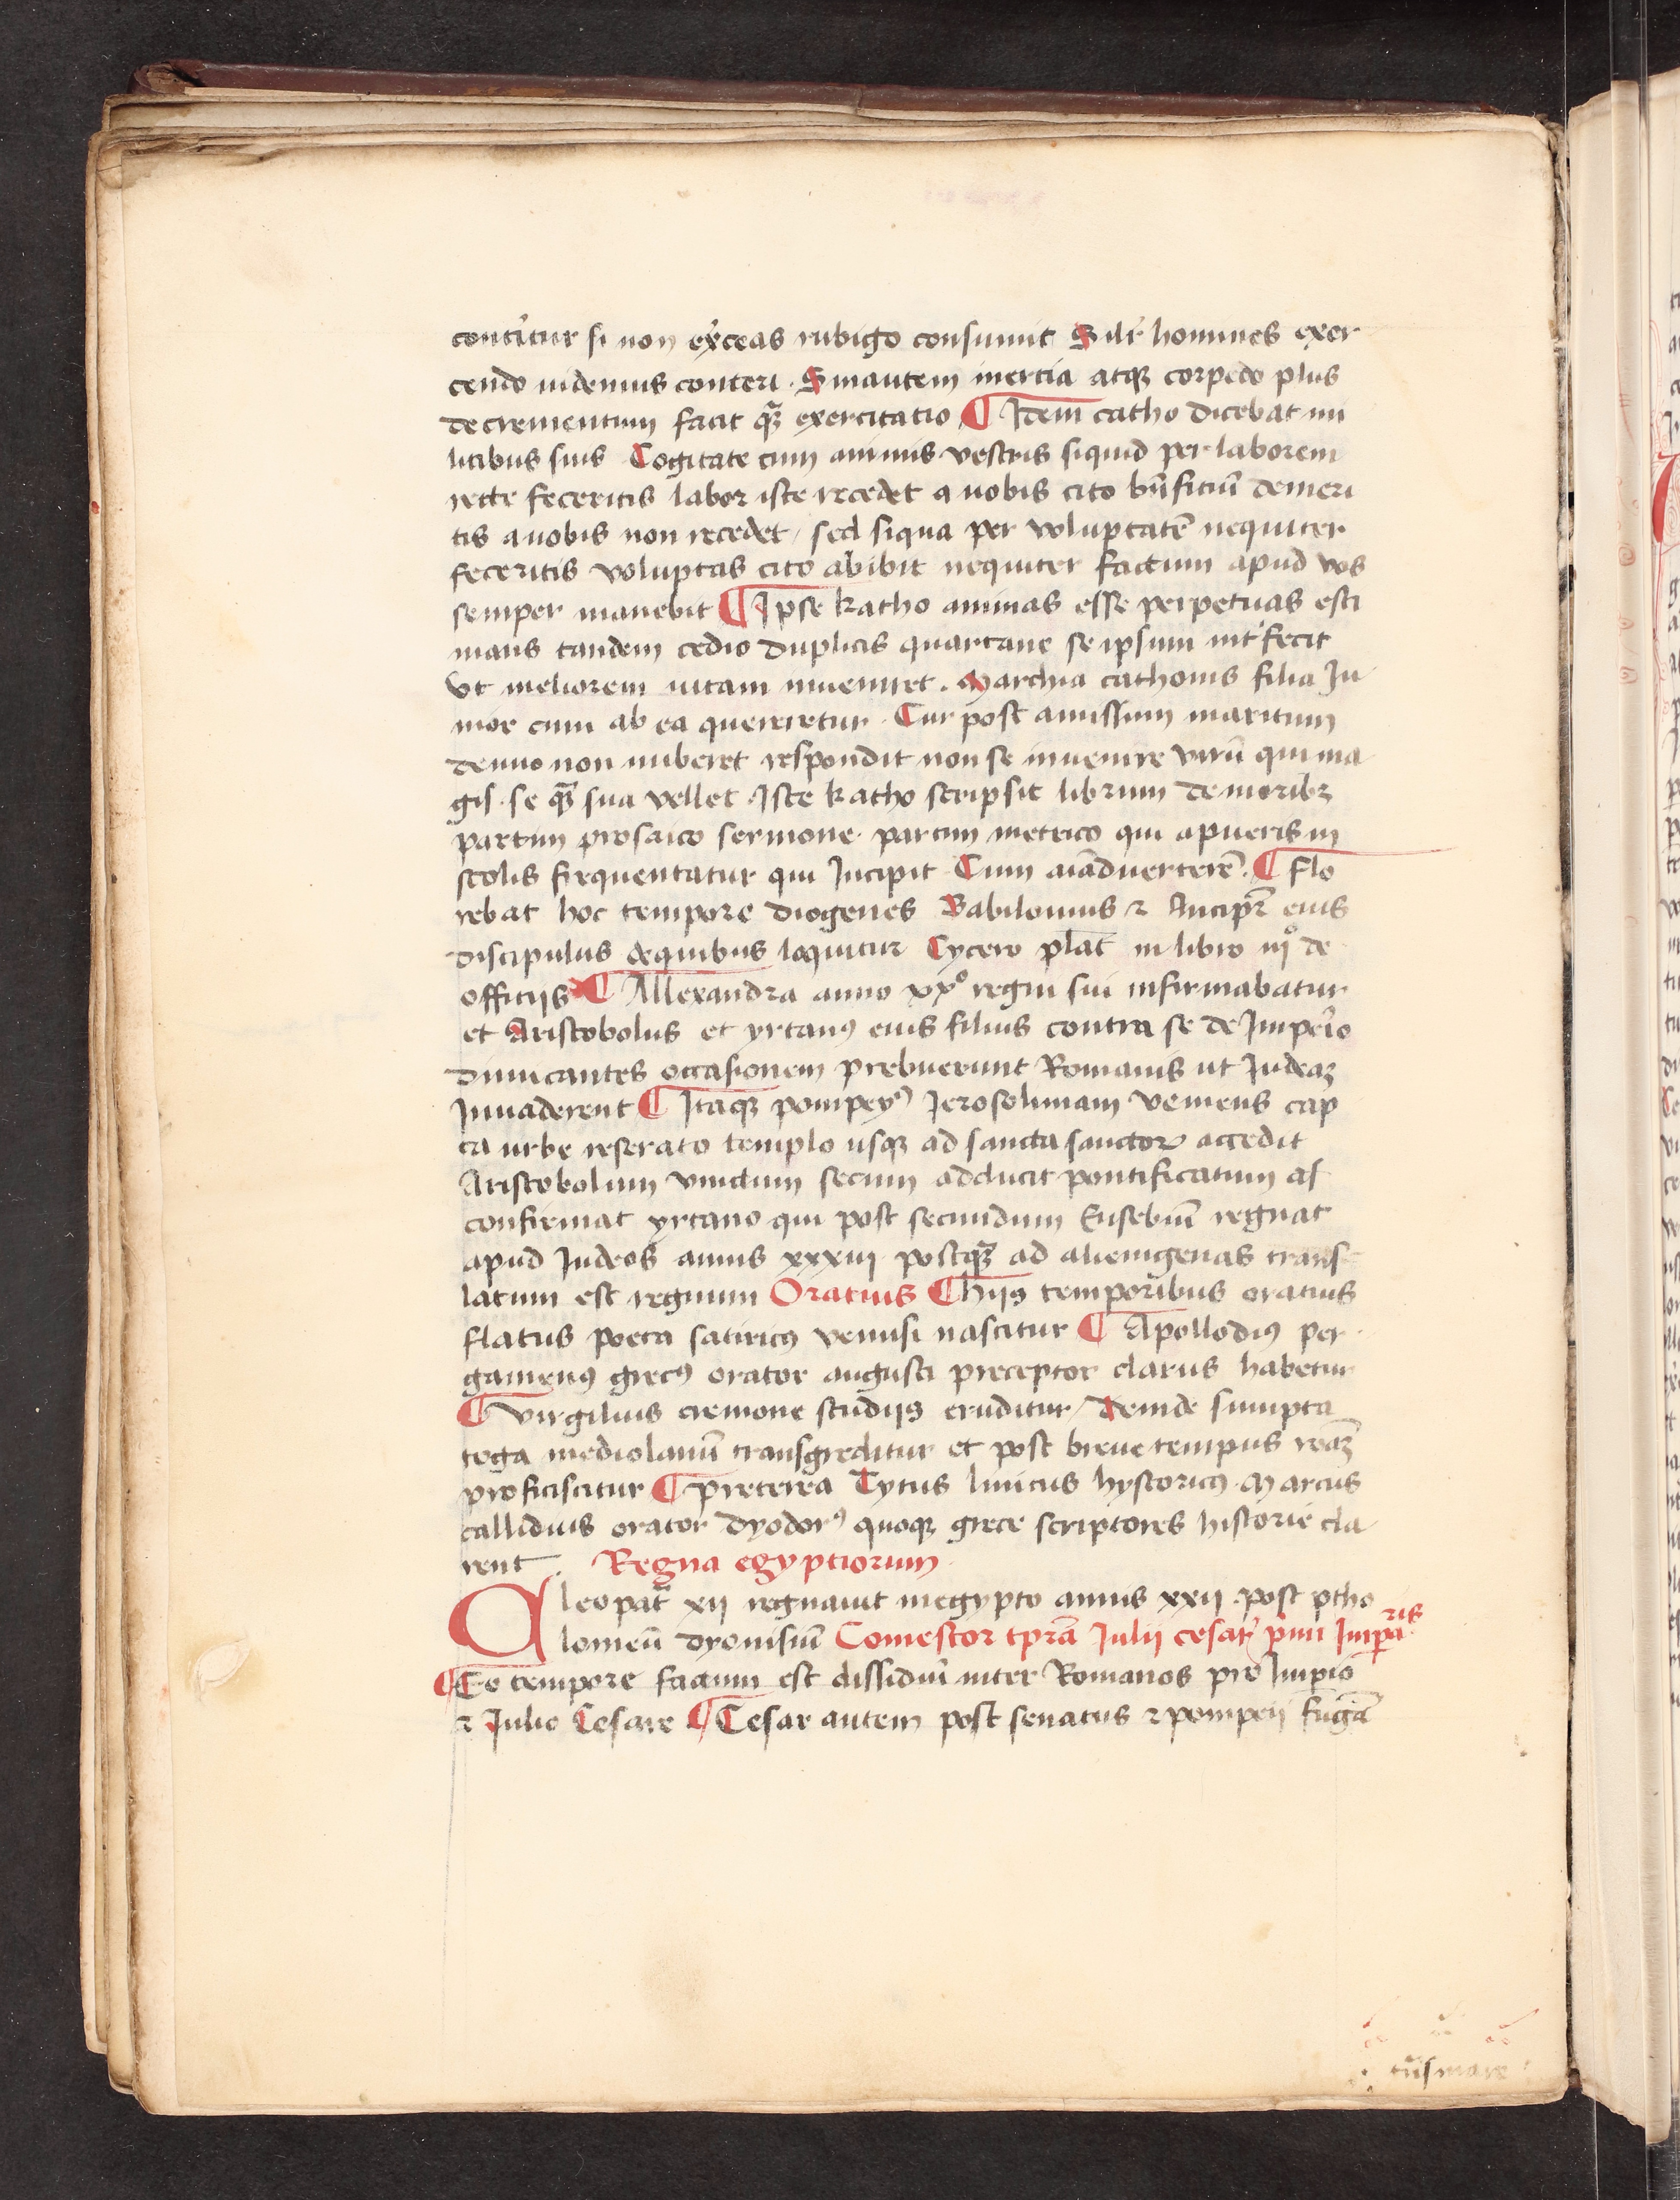 contit̉ur si non ex̉ceas rubigo consumit Silr̃ homines exer
cendo uidemus conteri . Sinautem inertia atqꝫ corpedo plus
decrementum facit qꝫ̃ exercitatio ¶ Idem catho dicebat mi
litibus suis Cogitate cum animis vestris siquid per laborem
recte feceritis labor iste recedet a uobis cito bn̄ficiū demeri
tis auobis non recedet / sed siqua per voluptatē nequiter
feceritis voluptas cito abibit nequiter factum apud vos
semper manebit ¶ Ipse katho animas esse perpetuas esti
mans tandem tedio duplicis quartane se ipsum int̉fecit
vt meliorem uitam inueniret . Marchia cathonis filia Ju
nior cum ab ea quereretur . Cur post amissum maritum
denuo non nuberet respondit non se inuenire virū qui ma
gis . se qꝫ̃ sua vellet . Iste katho scripsit librum de moribꝫ
partim prosaico sermone . partim metrico qui apueris in
scolis frequentatur qui Incipit . Cum aīaduerterē . ¶ Flo
rebat hoc tempore diogenes Babilonius ⁊ Antipr̄ eius
discipulus dequibus loquitur Cycero plāt in libro iijº de
officijs ¶ Allexandra anno xxº regni sui infirmabatur
et Aristobolus et yrtanꝰ eius filius contra se de Imper̉io
dimicantes occasionem prebuerunt Romanis ut Iudeaꝫ
Inuaderent ¶ Itaqꝫ pompeyꝰ Jerosolimam veniens cap
ta urbe reserato templo usqꝫ ad sancta sanctoꝝ accedit
Aristobolum vinctum secum adducit pontificatum as
confirmat yrtano qui post secundum Eusebiū regnat
apud Iudeos annis xxxiii postqꝫ̃ ad alienigenas trans
latum est regnum Oratius ¶ hijs temporibus oratius
flatus poeta satiricꝰ venusi nascitur ¶ Apollodiꝰ per
gamenꝰ grecꝰ orator augusti preceptor clarus habetur
¶ virgilius cremone studijs eruditur / deinde sumpta
toga mediolanū transgreditur et post breue tempus roaꝫ̃
proficiscitur ¶ preterea Tytus liuicus hystoricꝰ . Marcus
callidius orator dyodorꝰ quoqꝫ grece scriptores historie cla
rent . Regna egyptiorum
Cleopat̃ xij regnauit inegypto annis xxij . post ptho
lomeū dyonisiū Comestor tprā Julij cesar̉ pīmi Impa
ris
¶ Eo tempore factum est dissidiū inter Romanos pre Impio
⁊ Julio Cesare ¶ Cesar autem post senatus ⁊ pompeij fugā